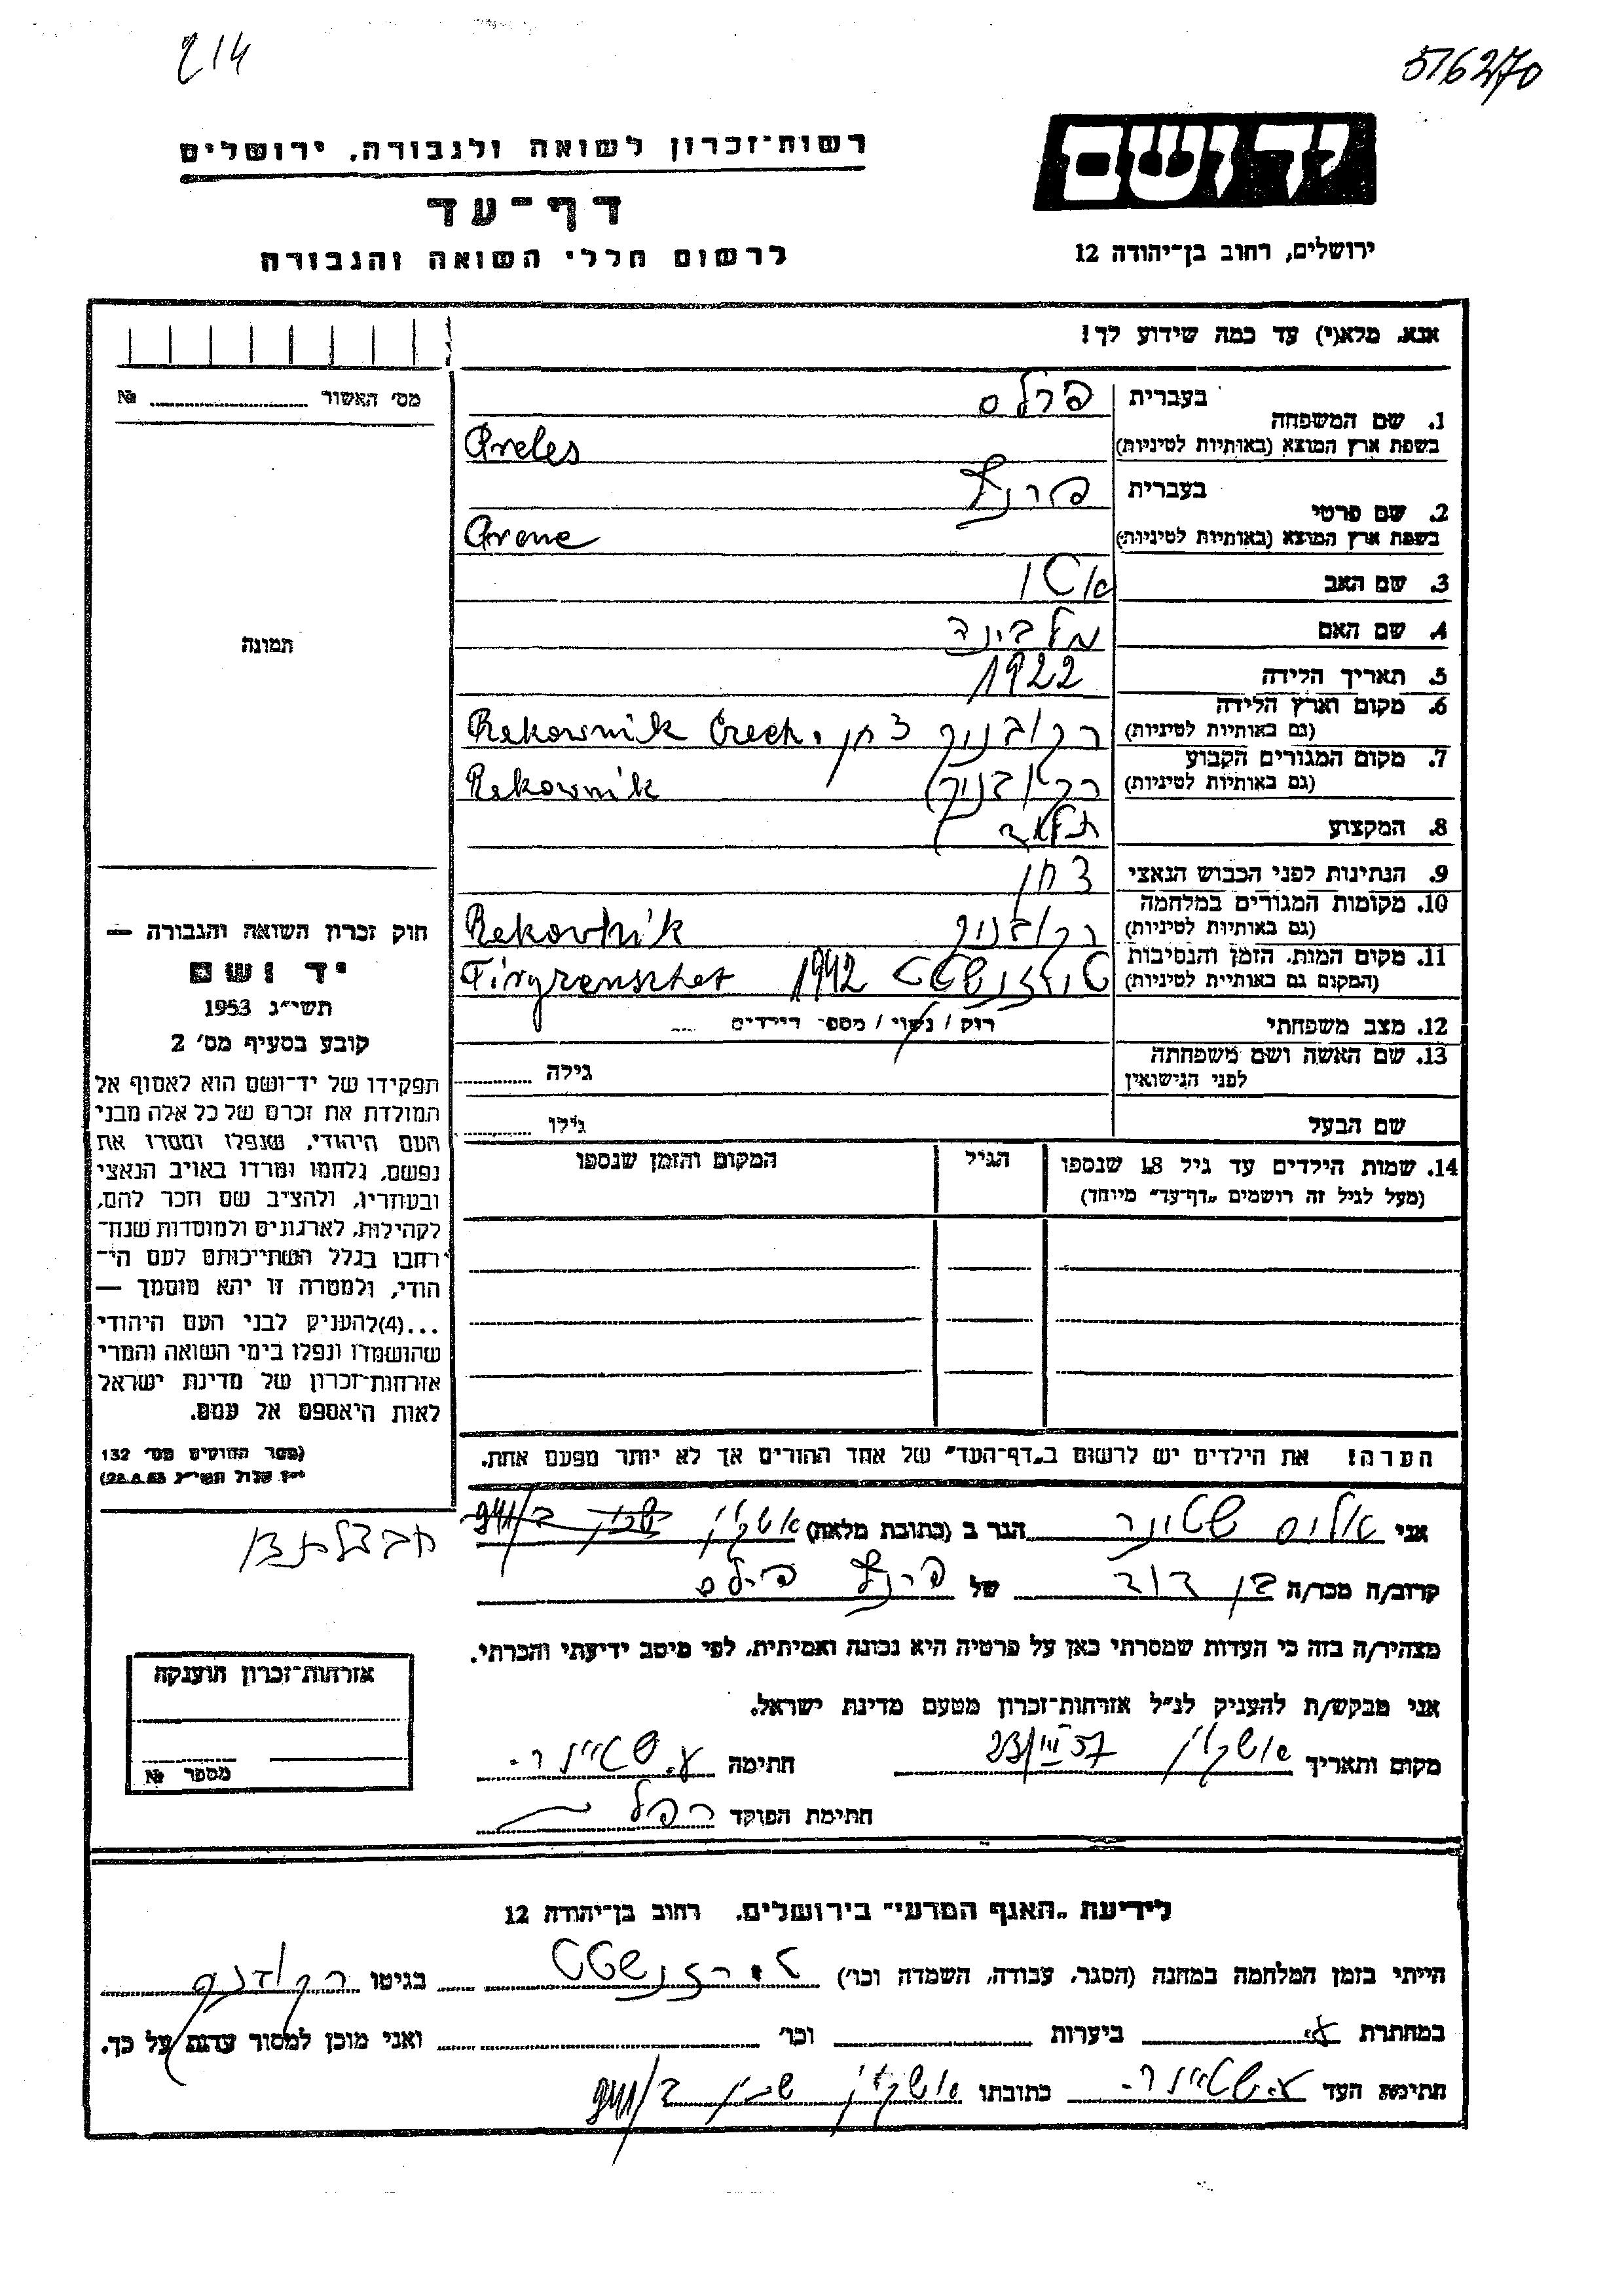 214
576270
יד ושם
רשות־זכרון לשואה ולגבורה, ירושלים
דף־עד
לרשום חללי השואה והגבורה
ירושלים, רחוב בן־יהודה 12
אנא, מלא(י) עד כמה שידוע לך!
מס׳ האשור №
1. שם המשפחה בעברית פרלס
בשפת ארץ המוצא (באותיות לטיניות) Preles
2. שם פרטי בעברית
בשפת ארץ המוצא (באותיות לטיניות)
3. שם האב
4. שם האם מלבינה
5. תאריך הלידה 1922
6. מקום וארץ הלידה
(גם באותיות לטיניות) רקובניק צ׳כן. Rekownik Czech.
7. מקום המגורים הקבוע
(גם באותיות לטיניות) רקובניק Rekownik
8. המקצוע
9. הנתינות לפני הכבוש הנאצי
10. מקומות המגורים במלחמה
(גם באותיות לטיניות) רקובניק Rekovnik
11. מקום המות, הזמן והנסיבות
(המקום גם באותיות לטיניות) 1942
12. מצב משפחתי רווק / נשוי / מספר הילדים
13. שם האשה ושם משפחתה
לפני הנישואין גילה
שם הבעל גילו
14. שמות הילדים עד גיל 18 שנספו
(מעל לגיל זה רושמים „דף־עד״ מיוחד)
הגיל
המקום והזמן שנספו
תמונה
חוק זכרון השואה והגבורה —
יד ושם
תשי״ג 1953
קובע בסעיף מס׳ 2
תפקידו של יד־ושם הוא לאסוף אל
המולדת את זכרם של כל אלה מבני
העם היהודי, שנפלו ומסרו את
נפשם, נלחמו ומרדו באויב הנאצי
ובעוזריו, ולהציב שם וזכר להם,
לקהילות, לארגונים ולמוסדות שנח־
רבו בגלל השתייכותם לעם הי־
הודי, ולמטרה זו יהא מוסמך —
...(4)להעניק לבני העם היהודי
שהושמדו ונפלו בימי השואה והמרי
אזרחות־זכרון של מדינת ישראל
לאות היאספם אל עמם.
(ספר החוקים מס׳ 132
הערה! את הילדים יש לרשום ב„דף־העד״ של אחד ההורים אך לא יותר מפעם אחת.
אני הגר ב (כתובת מלאה) אשקלון
קרוב/ה מכר/ה בן דוד של
מצהיר/ה בזה כי העדות שמסרתי כאן על פרטיה היא נכונה ואמיתית, לפי מיטב ידיעתי והכרתי.
אני מבקש/ת להעניק לנ״ל אזרחות־זכרון מטעם מדינת ישראל.
מקום ותאריך אשקלון 23/III 57 חתימה
חתימת הפוקד
אזרחות־זכרון הוענקה
מספר №
לידיעת „האגף המדעי״ בירושלים, רחוב בן־יהודה 12
הייתי בזמן המלחמה במחנה (הסגר, עבודה, השמדה וכו׳) טרזנשטט בגיטו רקובניק
במחתרת ביערות וכו׳ ואני מוכן למסור עדות על כך.
חתימת העד כתובתו אשקלון